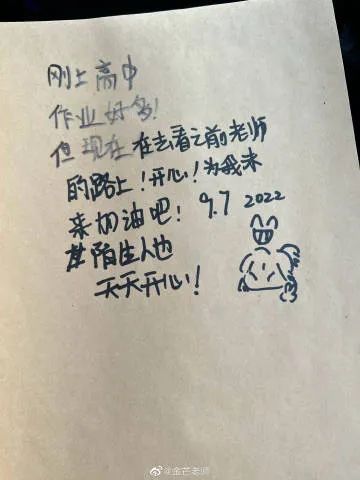 刚上高中
作业好多!
但现在在去看之前老师
的路上!开心!为我未
来加油吧! 9.7 2022
陌生人也
天天开心!
@金芒老师